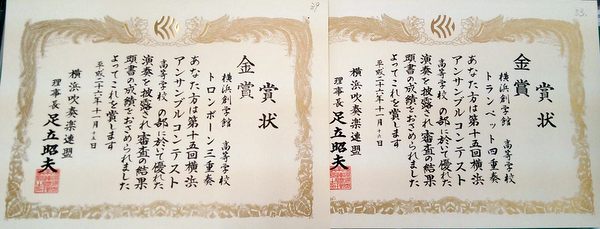 39
賞状
金賞
横浜創学館 高等学校
トロンボーン三重奏
あなた方は第十五回横浜
アンサンブルコンテスト
高等学校の部に於いて優れた
演奏を披露され審査の結果
頭書の成績をおさめられました
よってこれを賞します
平成二十六年十一月十六日
横浜吹奏楽連盟
理事長 足立昭夫
33.
賞状
金賞
横浜創学館 高等学校
トランペット四重奏
あなた方は第十五回横浜
アンサンブルコンテスト
高等学校の部に於いて優れた
演奏を披露され審査の結果
頭書の成績をおさめられました
よってこれを賞します
平成二十六年十一月十六日
横浜吹奏楽連盟
理事長 足立昭夫